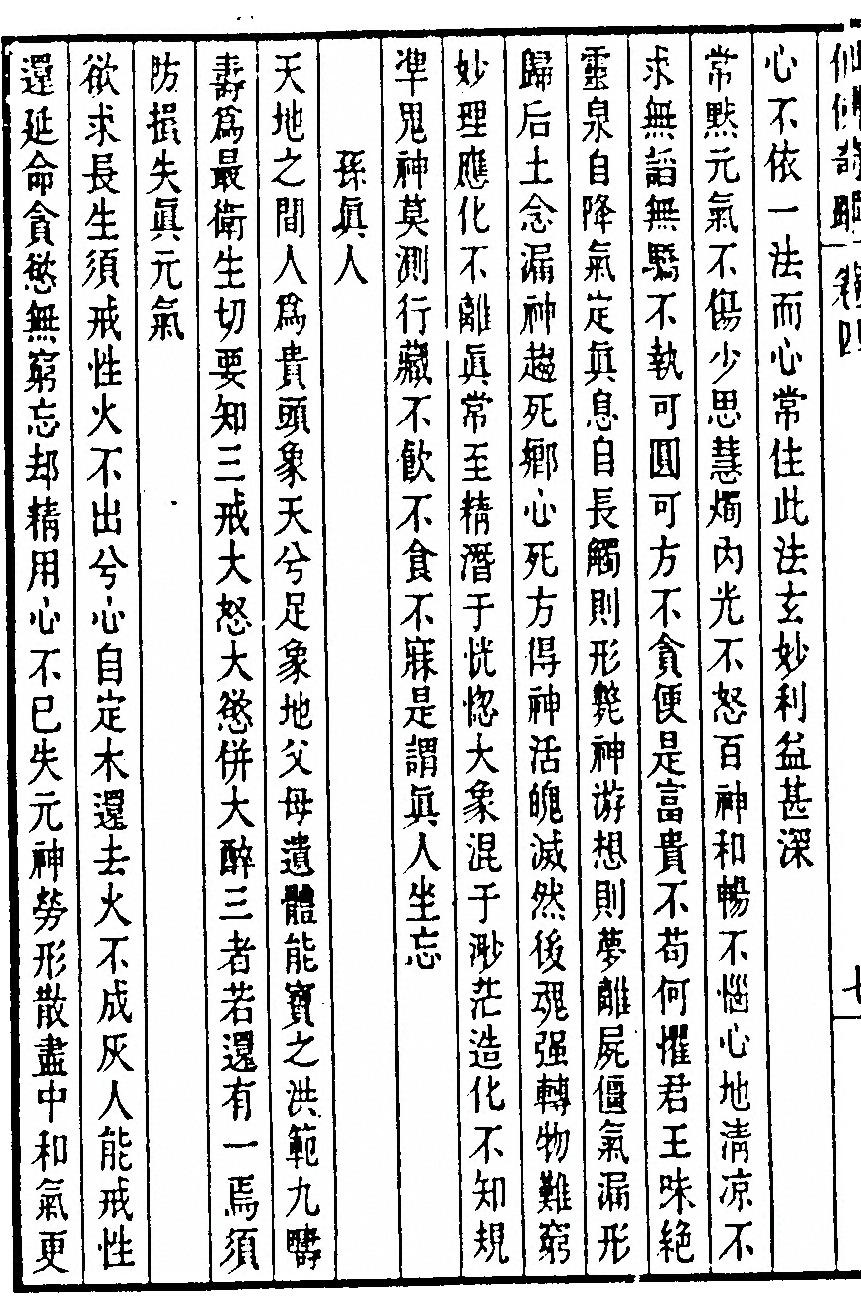 卷四
心不依一法而心常住此法玄妙利益甚深
常默元氣不傷少思慧燭內光不怒百神和暢不惱心地清凉不
求無諂無驕不執可圓可方不貪便是富貴不苟何懼君王味絶
靈泉自降氣定眞息自長觸則形斃神游想則夢離屍僵氣漏形
歸后土念漏神趨死鄉心死方得神活魄滅然後魂强轉物難窮
妙理應化不離眞常至精潛于恍惚大象混于渺茫造化不知規
凖鬼神莫測行藏不飲不食不寐是謂眞人坐忘
孫眞人
天地之間人爲貴頭象天兮足象地父母遺體能寶之洪範九疇
壽爲最衛生切要知三戒大怒大慾併大醉三者若還有一焉須
防損失眞元氣
欲求長生須戒性火不出兮心自定木還去火不成灰人能戒性
還延命貪慾無窮忘却精用心不已失元神勞形散盡中和氣更